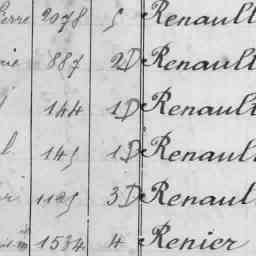 2078 5 Renault
887 2D Renault
144 1D Renault
145 1D Renault
1125 3D Renaul
1534 4 Renier